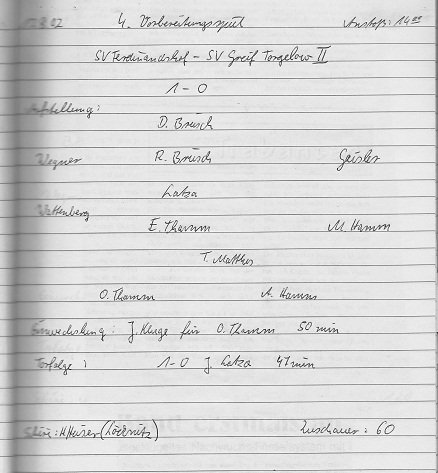 8.02 4. Vorbereitungsspiel Anstoß: 14⁰⁰
SV Ferdinandshof - SV Greif Torgelow II
1-0
Aufstellung:
D. Brüsch
Wegner R. Brüsch Geisler
Latza
Wattenberg E. Thamm M. Hamm
T. Matthes
O. Thamm A. Hamm
Einwechslung: J. Kluge für O. Thamm 50 min
Torfolge: 1-0 J. Latza 47 min
(Löcknitz) Zuschauer: 60